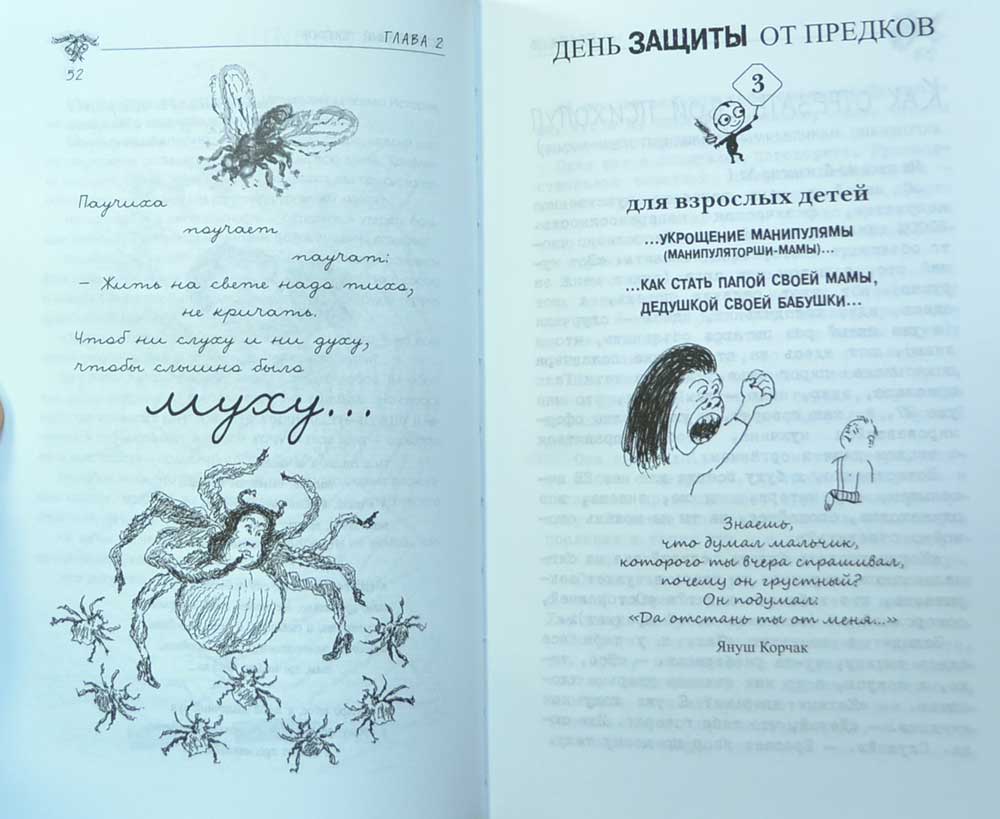 ГЛАВА 2
52
Паучиха
поучает
паучат:
– Жить на свете надо тихо,
не кричать.
Чтоб ни слуху и ни духу,
чтобы слышно было
муху...
ДЕНЬ ЗАЩИТЫ ОТ ПРЕДКОВ
3
для взрослых детей
...УКРОЩЕНИЕ МАНИПУЛЯМЫ
(МАНИПУЛЯТОРШИ-МАМЫ)...
...КАК СТАТЬ ПАПОЙ СВОЕЙ МАМЫ,
ДЕДУШКОЙ СВОЕЙ БАБУШКИ...
Знаешь,
что думал мальчик,
которого ты вчера спрашивал,
почему он грустный?
Он подумал:
«Да отстань ты от меня...»
Януш Корчак